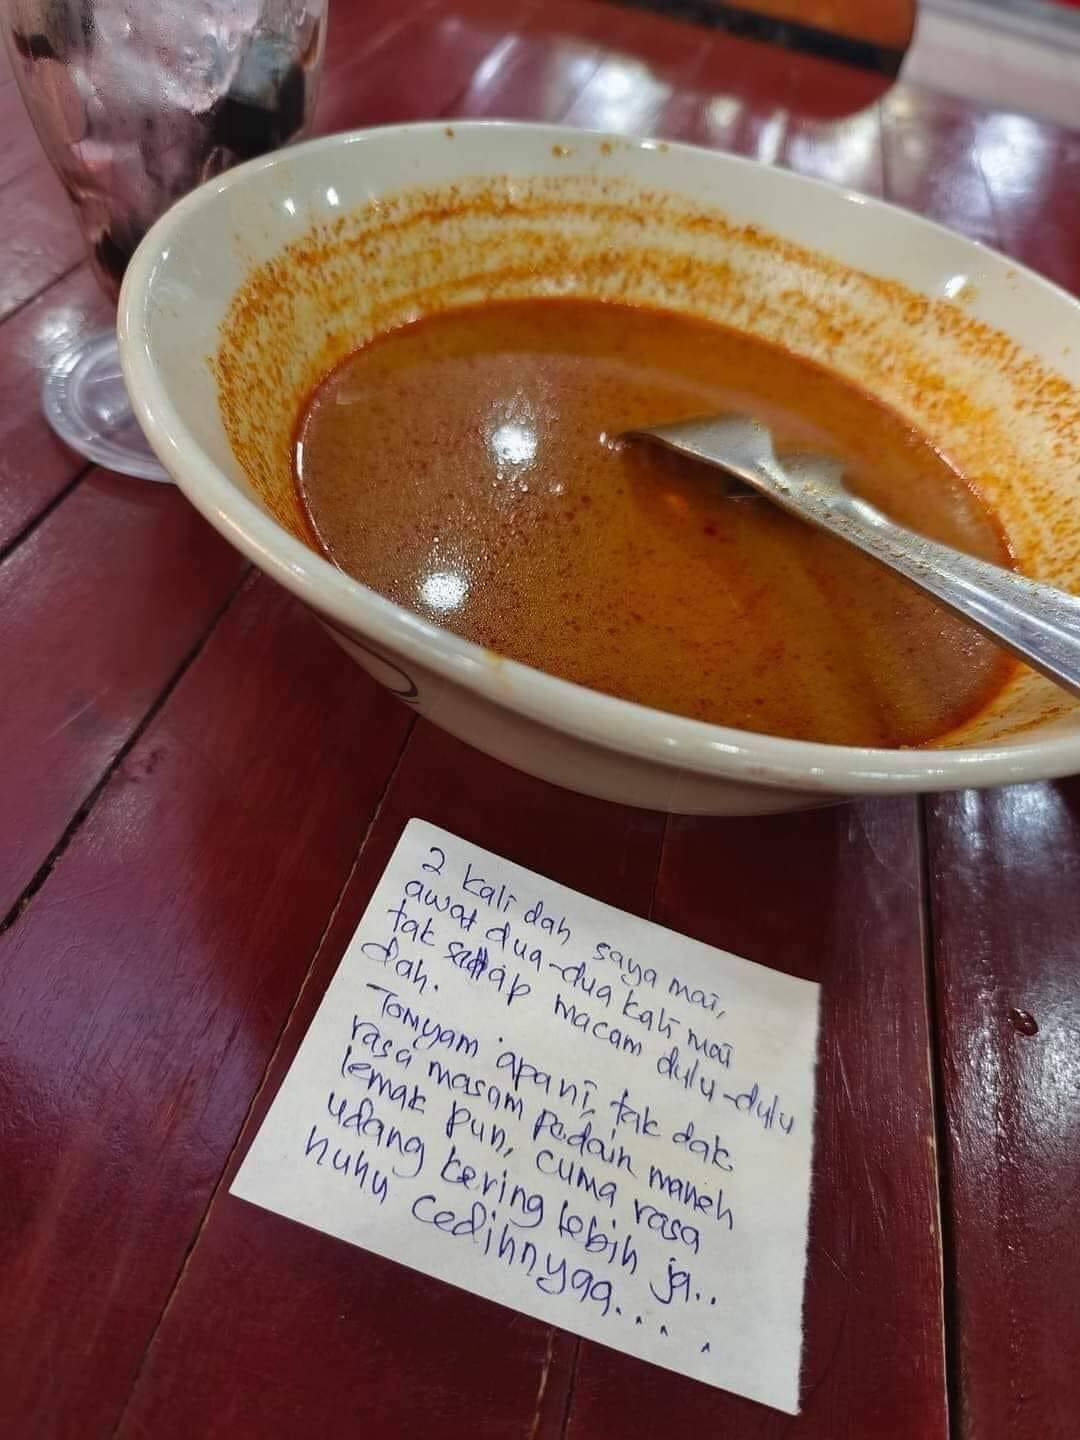 2 kali dah saya mai,
awat dua-dua kali mai
tak sedap macam dulu-dulu
dah.
Tomyam apani, tak dak
rasa masam pedaih maneh
lemak pun, cuma rasa
udang kering lebih ja..
huhu cedihnyaa....